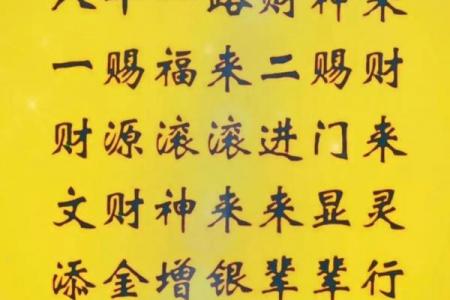 路财神来
一赐福来二赐财
财源滚滚进门来
文财神来来显灵
添金增银辈辈行